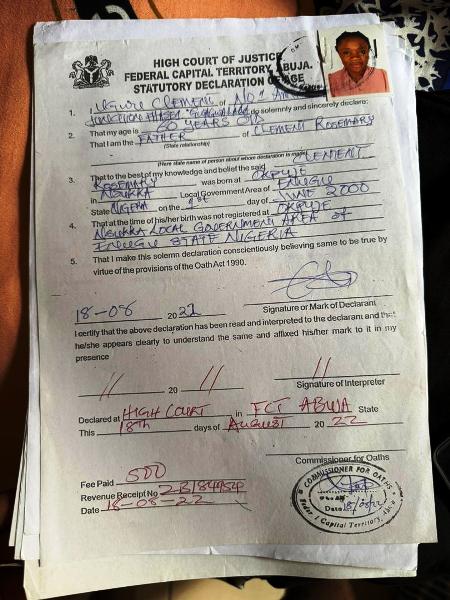 HIGH COURT OF JUSTICE
FEDERAL CAPITAL TERRITORY, ABUJA.
STATUTORY DECLARATION OF AGE
1. CLEMENT of NO
JUNCTION do solemnly and sincerely declare:
2. That my age is 60 YEARS OLD
That I am the FATHER of CLEMENT ROSEMARY
(State relationship)
(Here state name of person about whose declaration is made)
3. That to the best of my knowledge and belief the said CLEMENT
ROSEMARY was born at OKPUJE
in NSUKKA Local Government Area of ENUGU
State NIGERIA on the 1st day of JUNE 2000
4. That at the time of his/her birth was not registered at OKPUJE
NSUKKA LOCAL GOVERNMENT AREA of
ENUGU STATE NIGERIA
5. That I make this solemn declaration conscientiously believing same to be true by
virtue of the provisions of the Oath Act 1990.
18-08 2022
Signature or Mark of Declarant
I certify that the above declaration has been read and interpreted to the declarant and that
he/she appears clearly to understand the same and affixed his/her mark to it in my
presence
// 20 // //
Signature of Interpreter
Declared at HIGH COURT in FCT ABUJA State
This 18th days of AUGUST 2022
Commissioner for Oaths
Fee Paid 500
Revenue Receipt No 2B184954
Date 18-08-22
COMMISSIONER FOR OATHS
Date 18/08/22
Federal Capital Territory, Abuja